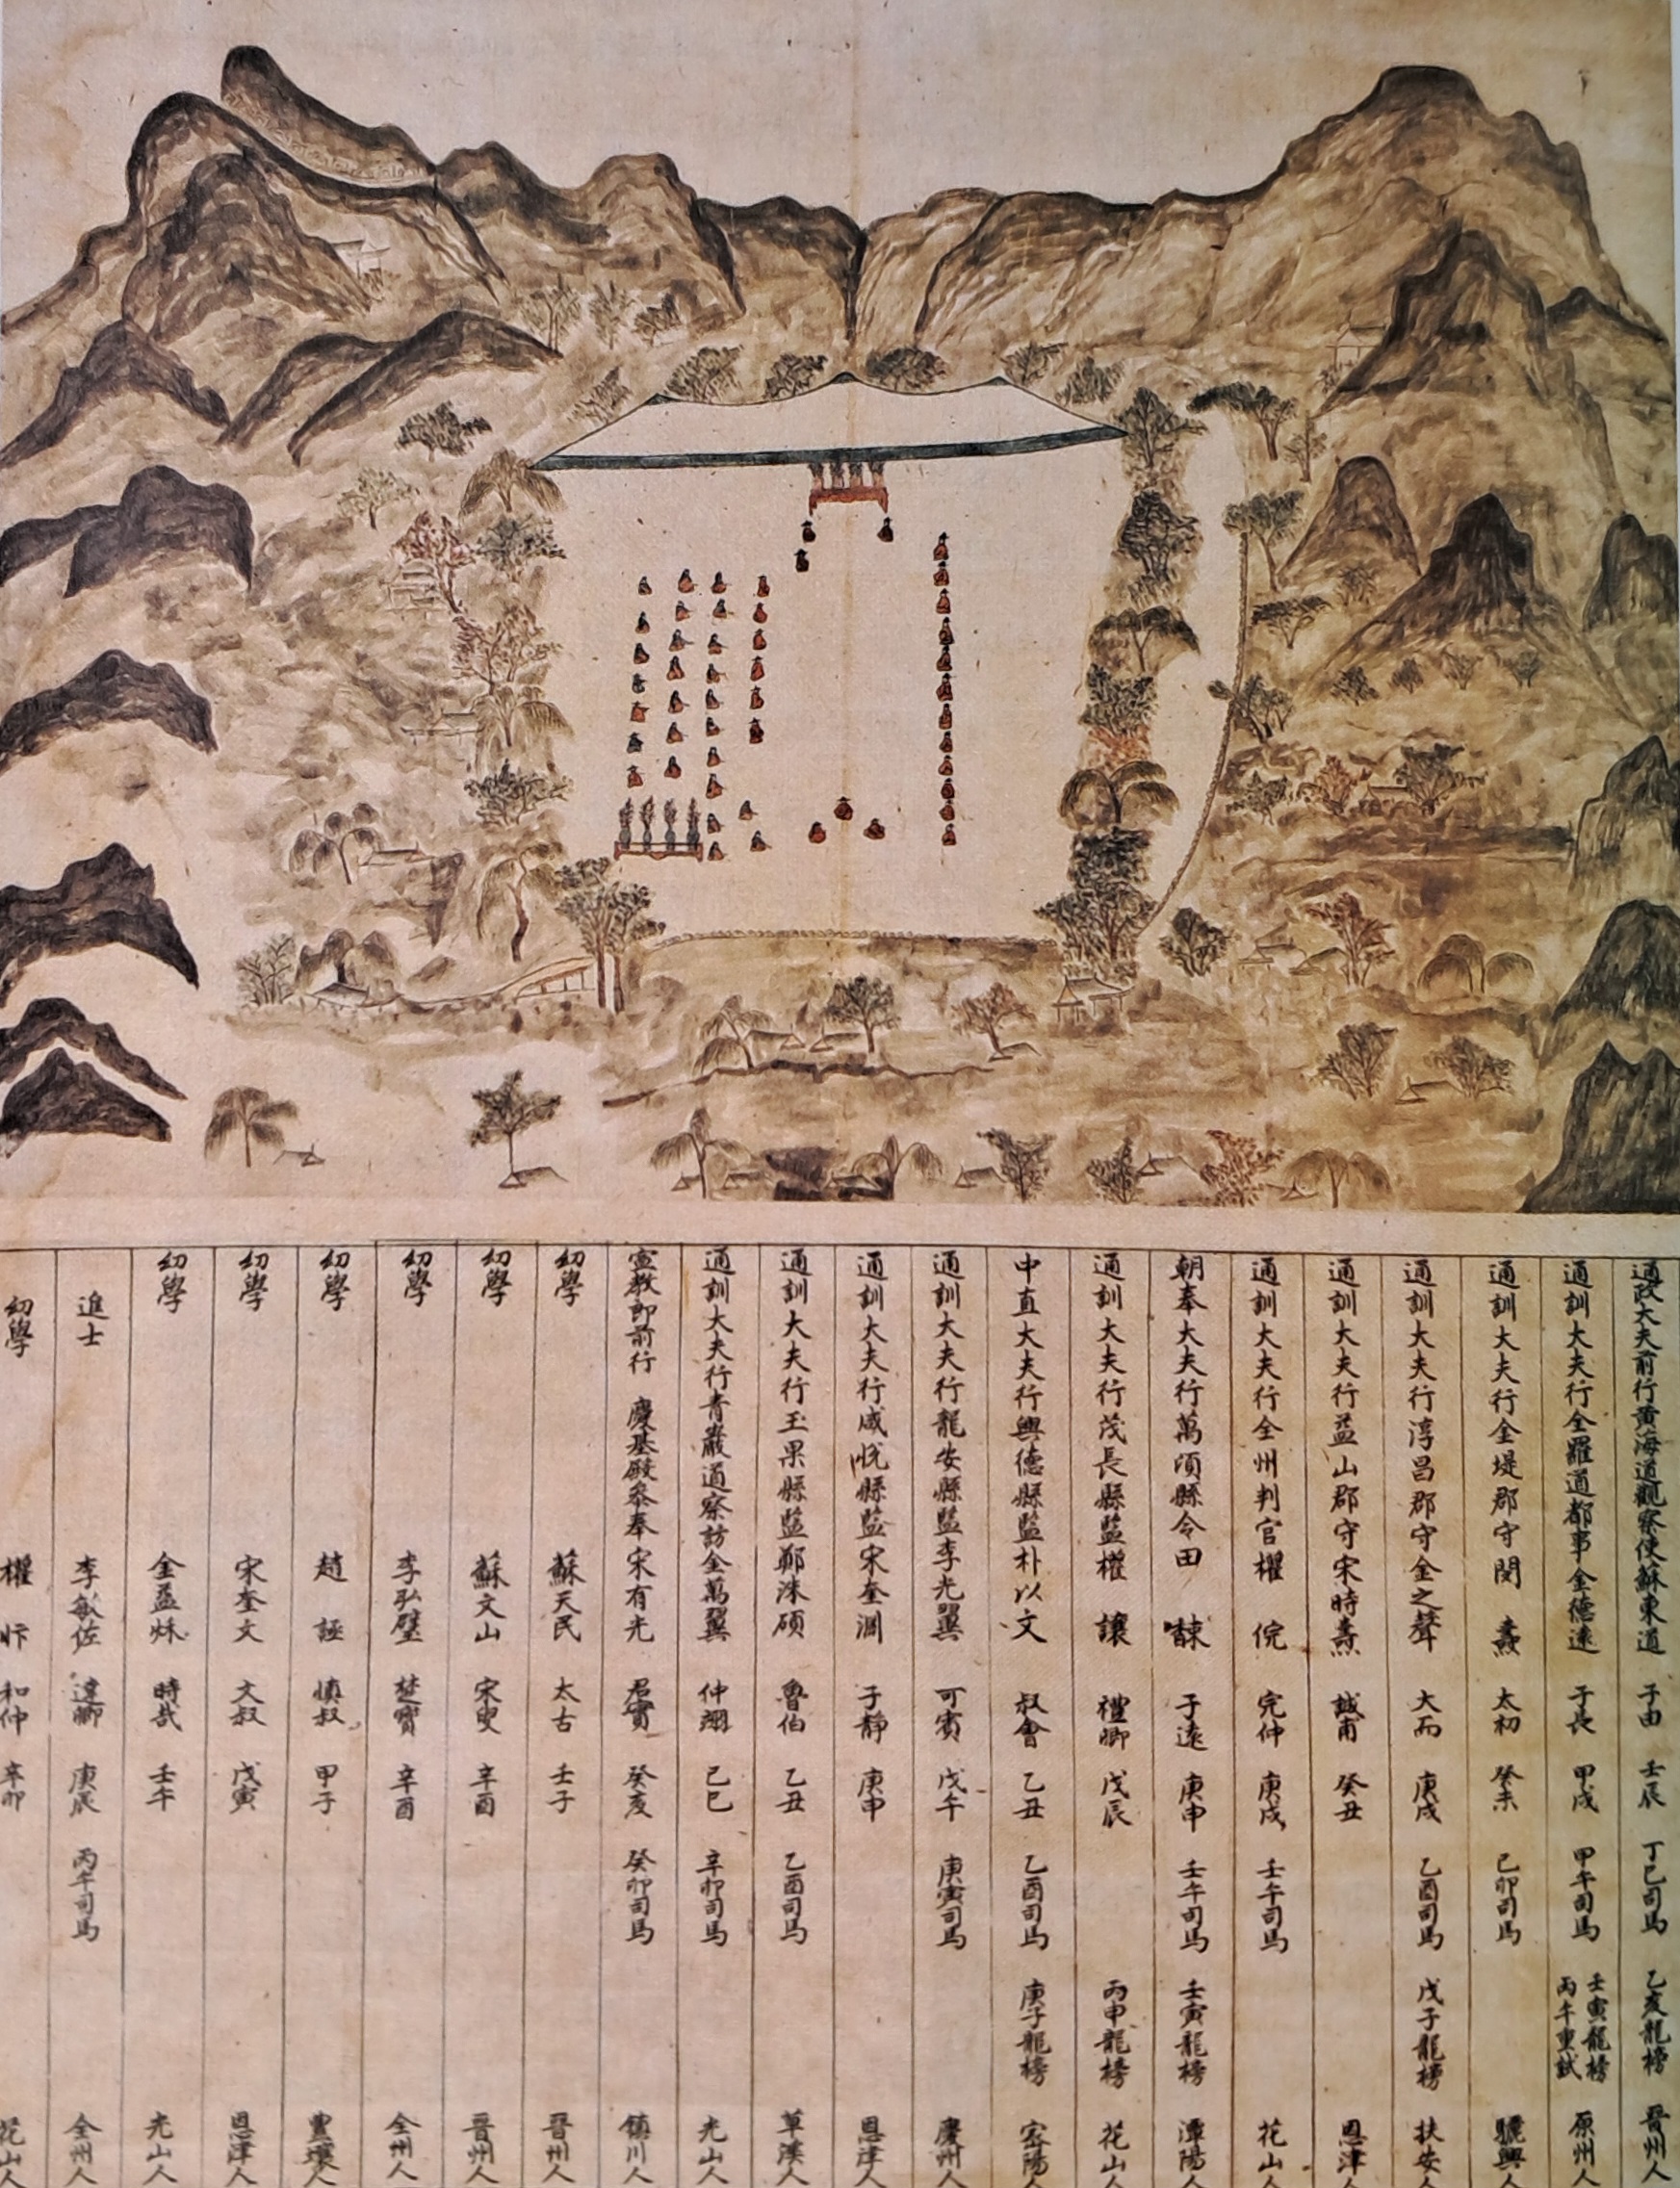 通政大夫前行黃海道觀察使蘇東道 子由 壬辰 丁巳司馬 乙亥龍榜 晉州人
通訓大夫行全羅道都事金德遠 子長 甲戌 甲午司馬 壬寅龍榜 丙午重試 原州人
通訓大夫行金堤郡守閔 太初 癸未 己卯司馬 驪興人
通訓大夫行淳昌郡守金之聲 大而 庚戌 乙酉司馬 戊子龍榜 扶安人
通訓大夫行益山郡守宋時燾 誠甫 癸丑 恩津人
通訓大夫行全州判官權 俒 完仲 庚戌 壬午司馬 花山人
朝奉大夫行萬頃縣令田 子遠 庚申 壬午司馬 壬寅龍榜 潭陽人
通訓大夫行茂長縣監權 讓 禮卿 戊辰 丙申龍榜 花山人
中直大夫行興德縣監朴以文 叔會 乙丑 乙酉司馬 庚子龍榜 密陽人
通訓大夫行龍安縣監李光翼 可賓 戊午 庚寅司馬 慶州人
通訓大夫行咸悅縣監宋奎淵 子靜 庚申 恩津人
通訓大夫行玉果縣監鄭洙碩 魯伯 乙丑 乙酉司馬 草溪人
通訓大夫行靑巖道察訪金萬翼 仲翊 己巳 辛卯司馬 光山人
宣教郎前行 慶基殿叅奉宋有光 君實 癸亥 癸卯司馬 鎭川人
幼學 蘇天民 太古 壬子 晉州人
幼學 蘇文山 宋叟 辛酉 晉州人
幼學 李弘璧 楚寶 辛酉 全州人
幼學 趙 誣 愼叔 甲子 豊壤人
幼學 宋奎文 文叔 戊寅 恩津人
幼學 金益秌 時哉 壬午 光山人
進士 李敏佐 達卿 庚辰 丙午司馬 全州人
幼學 權 和仲 辛卯 花山人